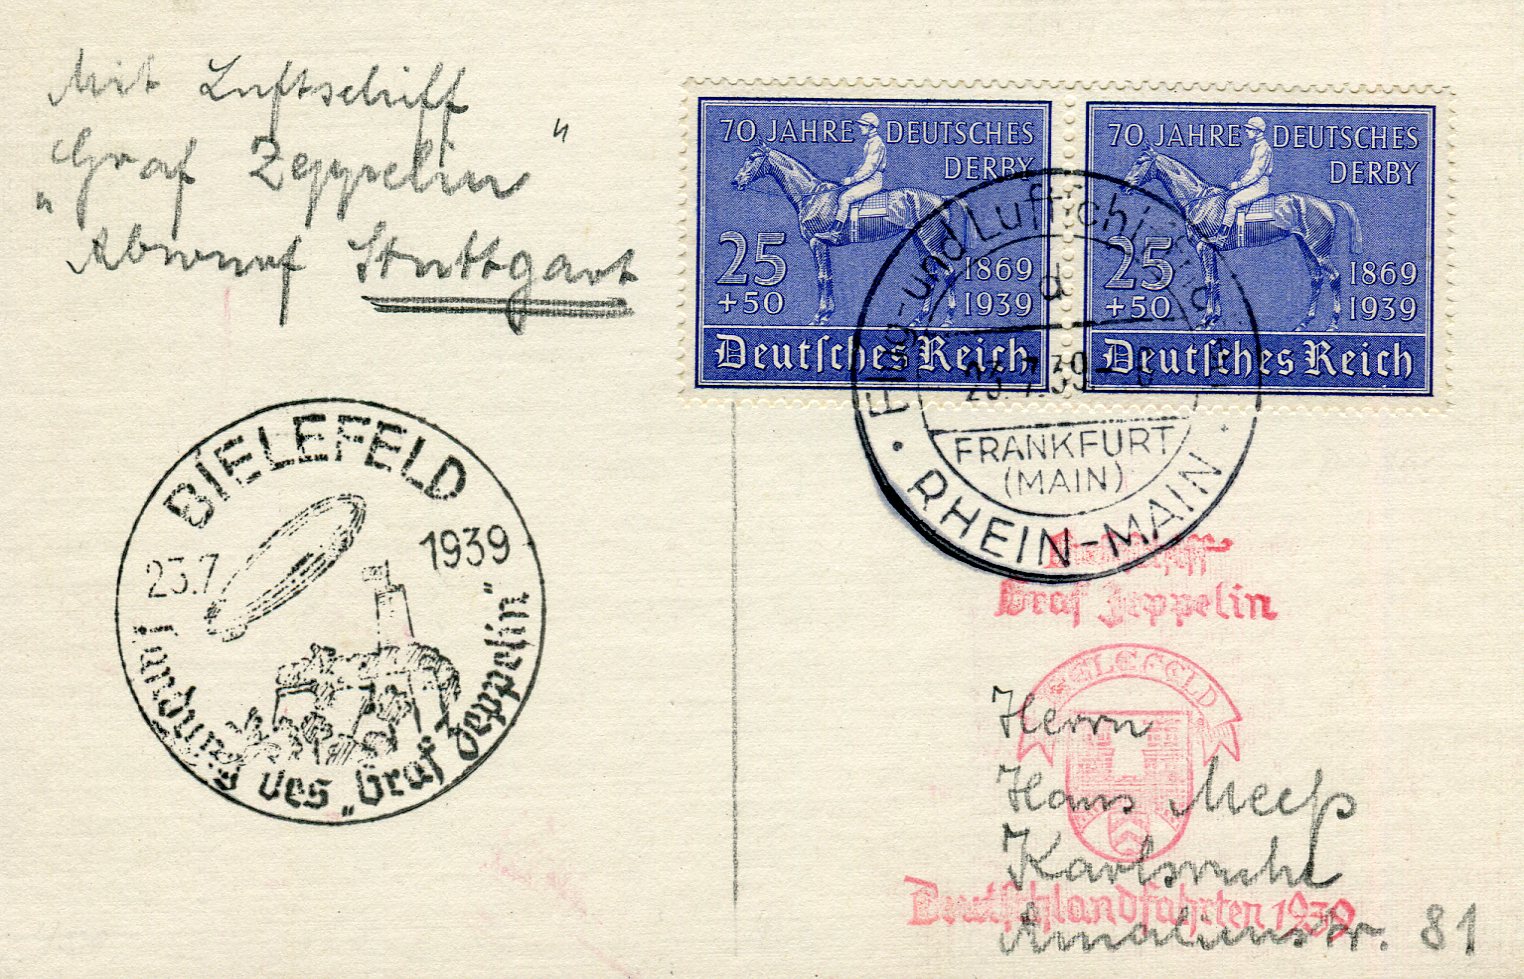 Mit Luftschiff
„Graf Zeppelin“
Abwurf Stuttgart
70 JAHRE DEUTSCHES
DERBY
25
+50
1869
1939
Deutsches Reich
70 JAHRE DEUTSCHES
DERBY
25
+50
1869
1939
Deutsches Reich
Flug- und Luftschiffhafen
d
23.7.39
FRANKFURT
(MAIN)
RHEIN-MAIN
BIELEFELD
23.7. 1939
Landung des „Graf Zeppelin“
Luftschiff
Graf Zeppelin
BIELEFELD
Deutschlandfahrten 1939
Herrn
Hans Meeß
Karlsruhe
Amalienstr. 81